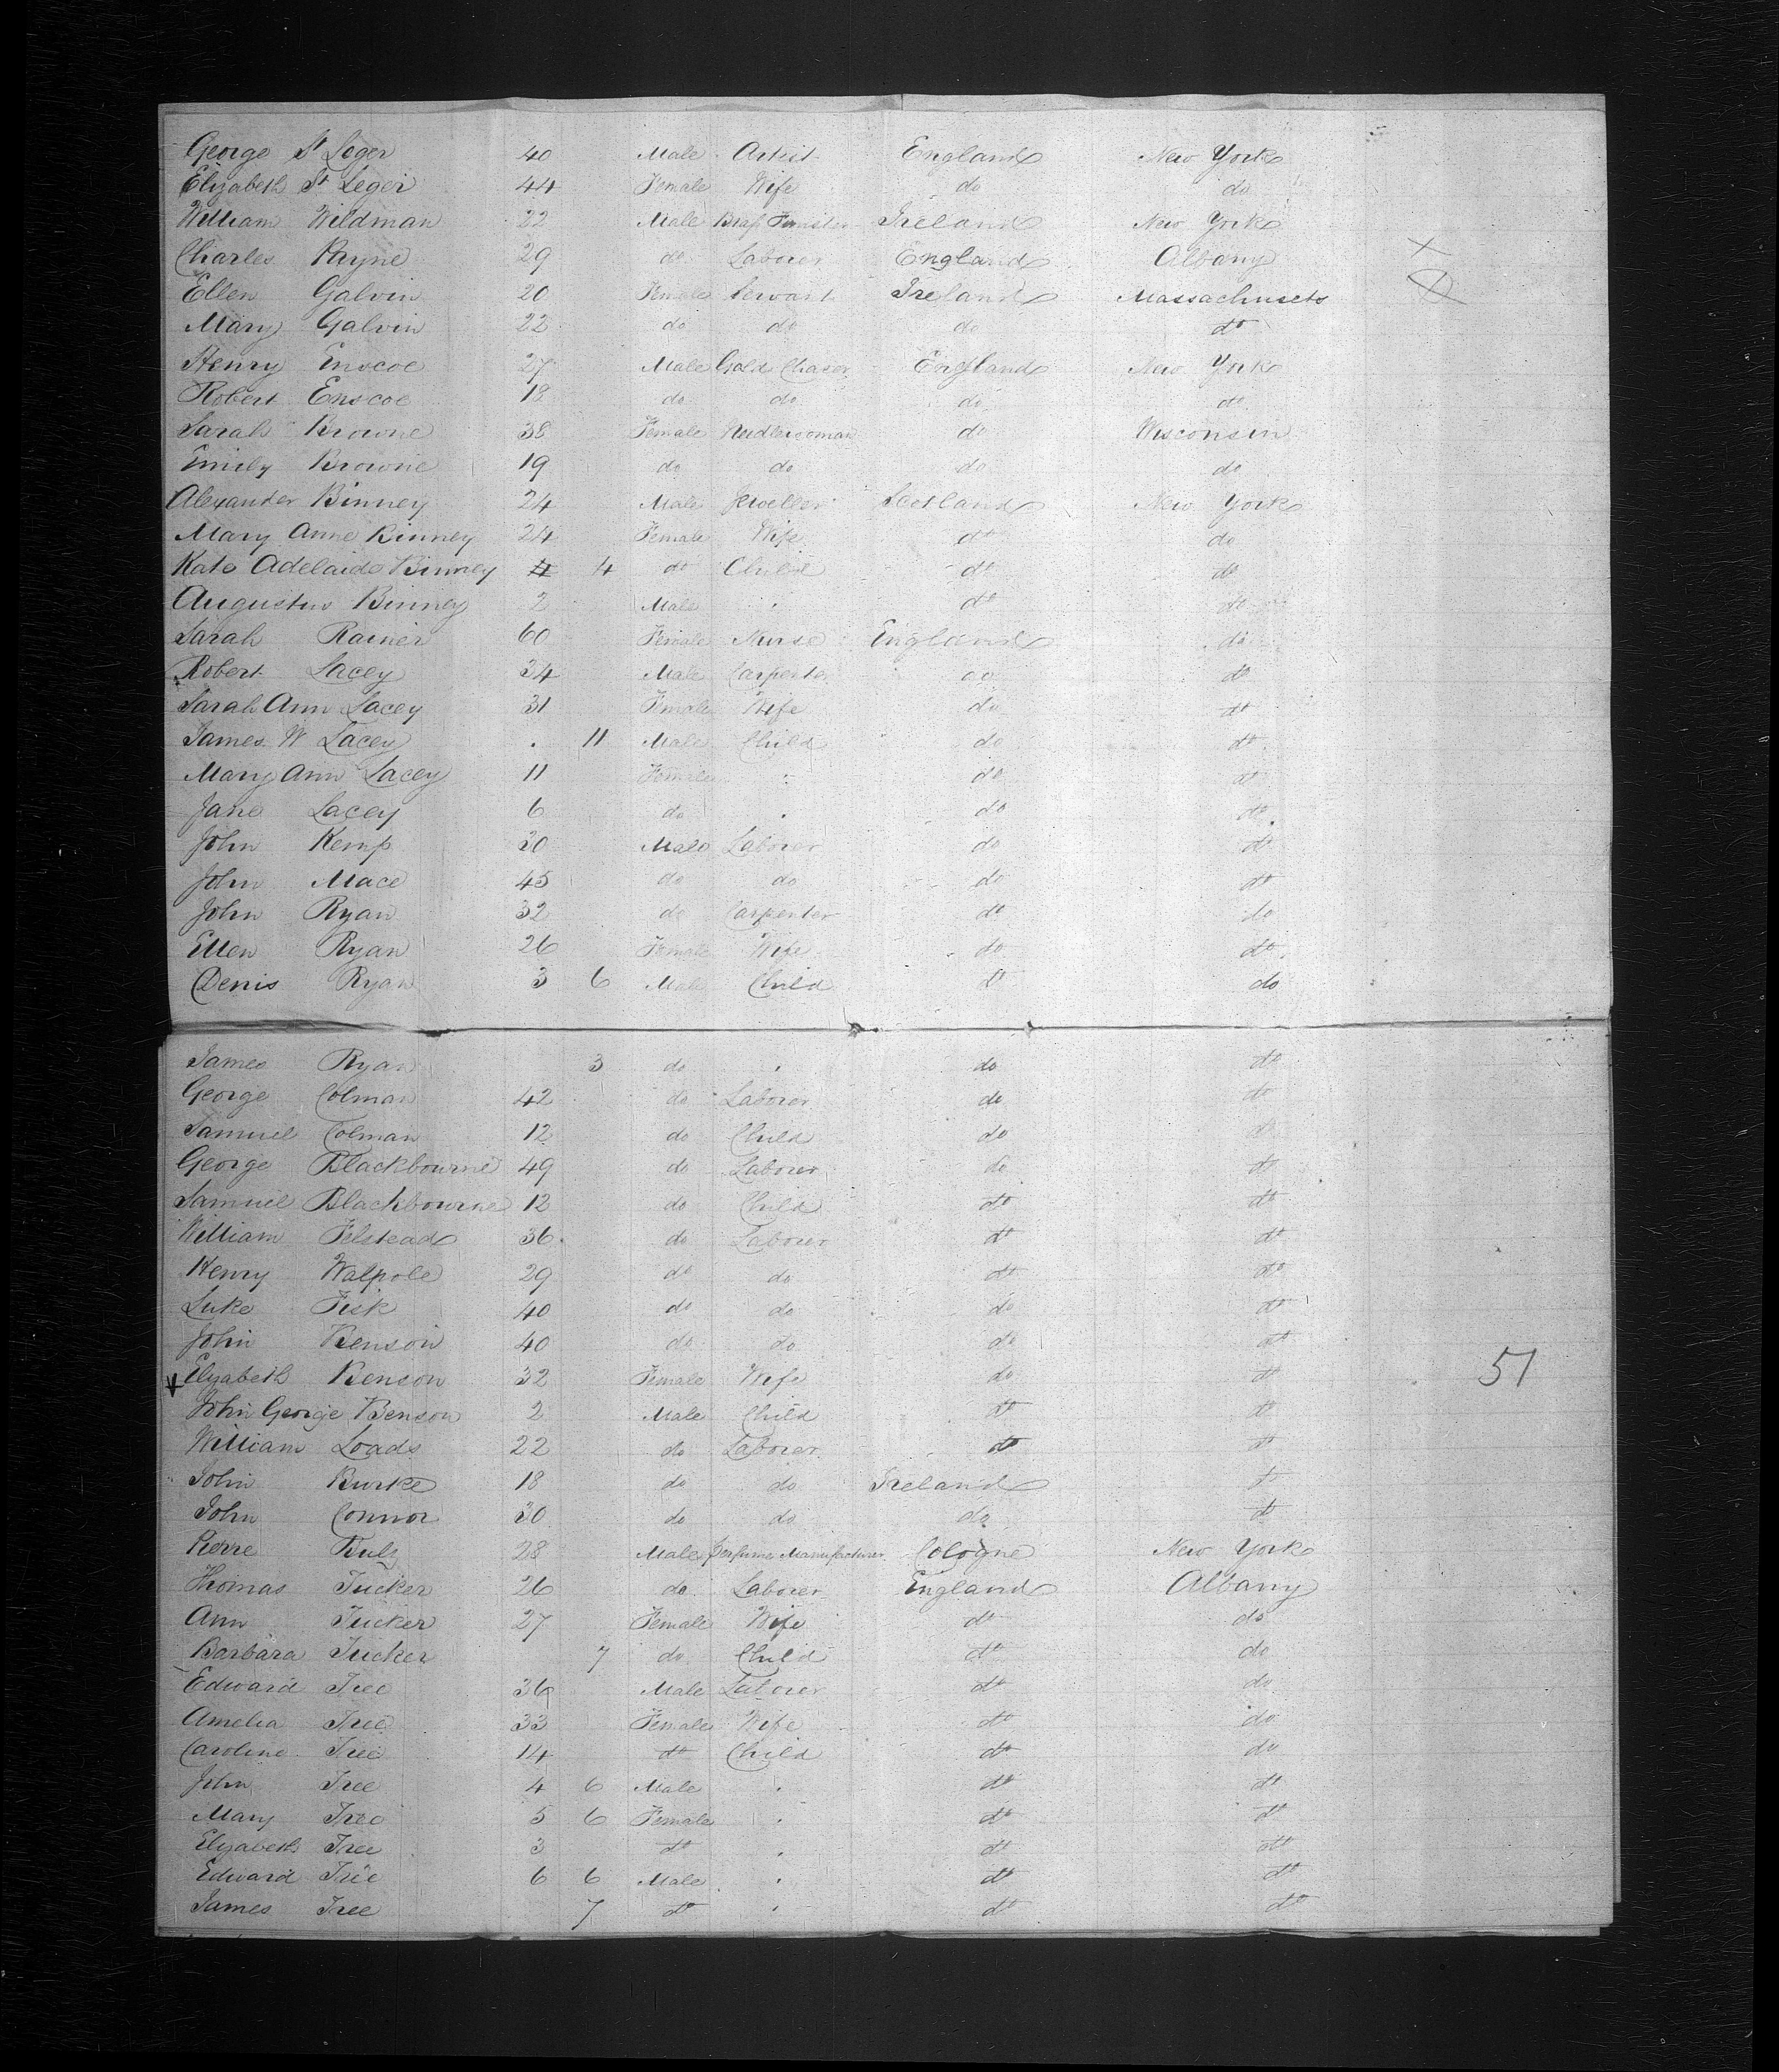 George St Leger 40 Male Artist England New York
Elizabeth St Leger 44 Female Wife do do
William Wildman 22 Male Brass Ireland New York
Charles Payne 29 do Laborer England Albany X
Ellen Galvin 20 Female Servant Ireland Massachusets X
Mary Galvin 22 do do do do
Henry Enscoe 27 Male Gold Chaser England New York
Robert Enscoe 18 do do do do
Sarah Browne 38 Female Needlewoman do Wisconsin
Emily Browne 19 do do do do
Alexander Binney 24 Male Jeweller Scotland New York
Mary Anne Binney 24 Female Wife do do
Kate Adelaide Binney 4 do Child do do
Augustus Binney 2 Male " do do
Sarah Rainer 60 Female Nurse England do
Robert Lacey 34 Male Carpenter do do
Sarah Ann Lacey 31 Female Wife do do
James W Lacey 11 Male Child do do
Mary Ann Lacey 11 Female " do do
Jane Lacey 6 do " do do
John Kemp 30 Male Laborer do do
John Mace 45 do do do do
John Ryan 32 do Carpenter do do
Ellen Ryan 26 Female Wife do do
Denis Ryan 3 6 Male Child do do
James Ryan 3 do " do do
George Colman 42 do Laborer do do
Samuel Colman 12 do Child do do
George Blackbourne 49 do Laborer do do
Samuel Blackbourne 12 do Child do do
William Felstead 36 do Laborer do do
Henry Walpole 29 do do do do
Luke Fisk 40 do do do do
John Benson 40 do do do do
Elizabeth Benson 32 Female Wife do do 51
John George Benson 2 Male Child do do
William Loads 22 do Laborer do do
John Burke 18 do do Ireland do
John Connor 30 do do do do
Pierre 28 Male Perfume Manufacturer Cologne New York
Thomas Tucker 26 do Laborer England Albany
Ann Tucker 27 Female Wife do do
Barbara Tucker 7 do Child do do
Edward Tree 36 Male Laborer do do
Amelia Tree 33 Female Wife do do
Caroline Tree 14 do Child do do
John Tree 4 6 Male " do do
Mary Tree 5 6 Female " do do
Elizabeth Tree 3 do " do do
Edward Tree 6 6 Male " do do
James Tree 7 do " do do